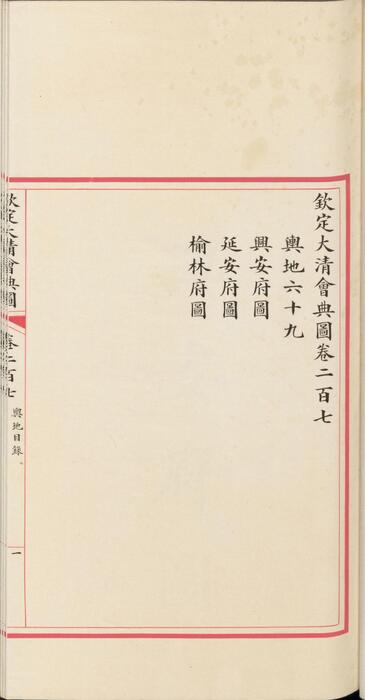 欽定大清會典圖卷二百七
輿地六十九
興安府圖
延安府圖
榆林府圖
欽定大清會典圖
卷二百七
輿地目錄
一